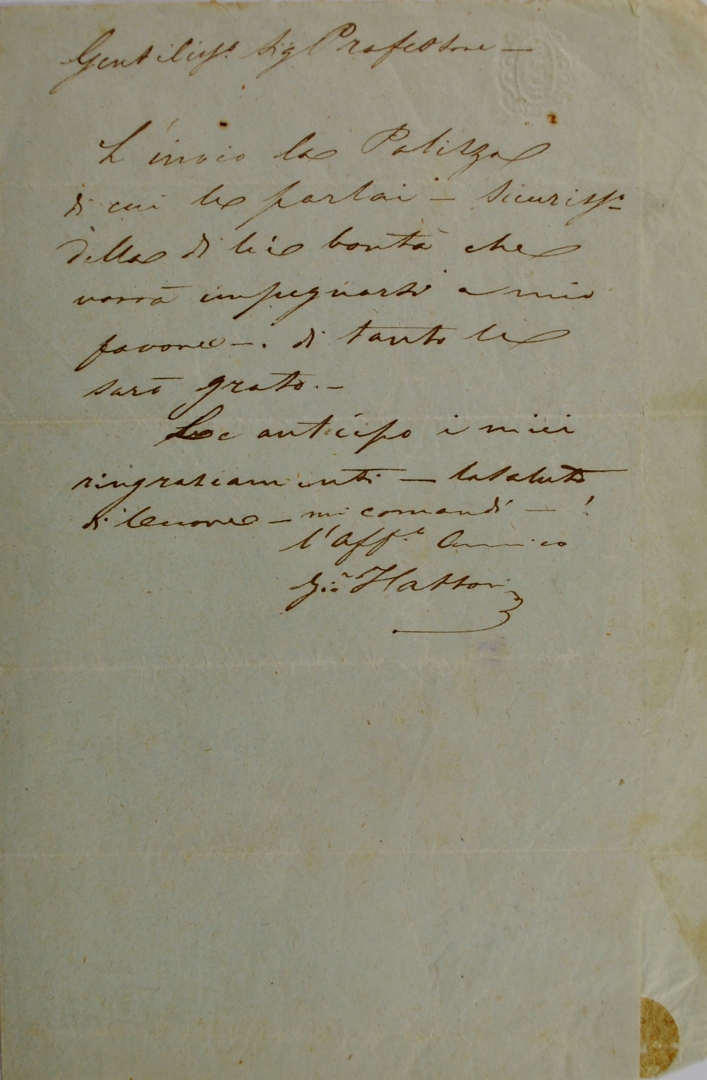 Gentiliss.o Sig Professore —
L'invio la Polizza
di cui le parlai — sicuriss.o
della di lei bontà che
vorrà impegnarsi a mio
favore —. di tanto le
sarò grato. —
Le anticipo i miei
ringraziamenti — la saluto
di cuore — mi comandi — !
l'Aff.o Amico